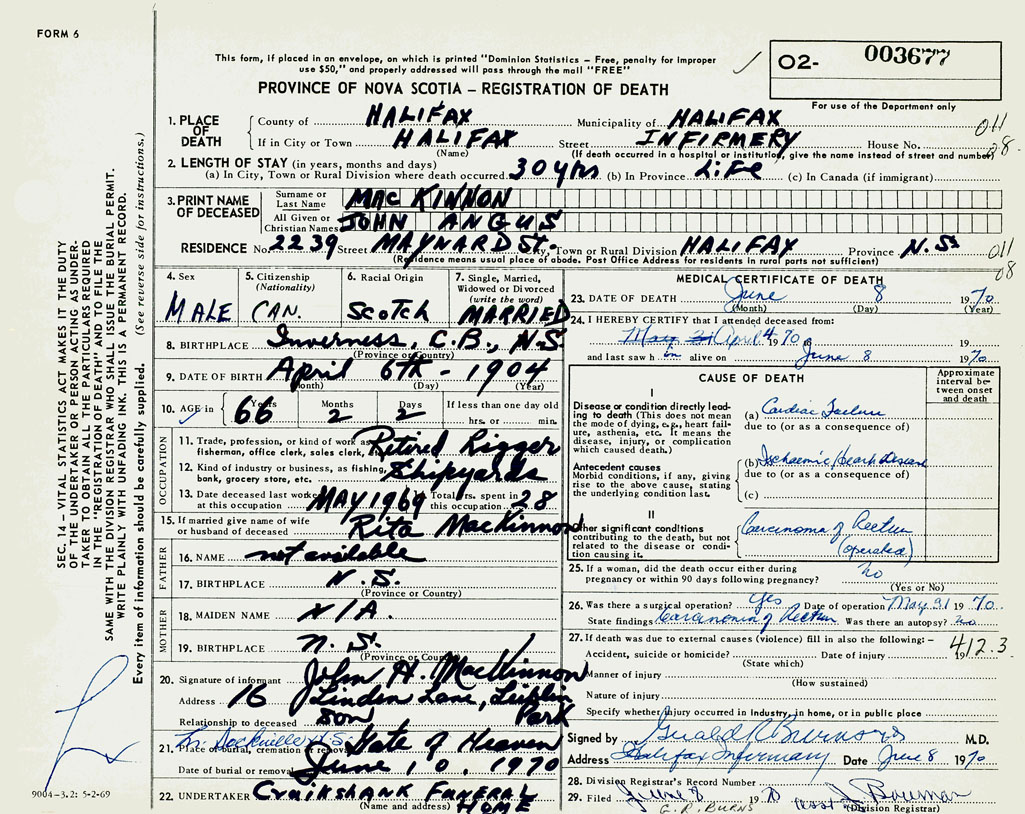 FORM 6
This form, if placed in an envelope, on which is printed "Dominion Statistics – Free, penalty for improper
use $50," and properly addressed will pass through the mail "FREE"
02- 003677
For use of the Department only
PROVINCE OF NOVA SCOTIA – REGISTRATION OF DEATH
1. PLACE OF DEATH
County of HALIFAX Municipality of HALIFAX 011
If in City or Town HALIFAX Street INFIRMERY House No. 08
(Name) (If death occurred in a hospital or institution, give the name instead of street and number)
2. LENGTH OF STAY (in years, months and days)
(a) In City, Town or Rural Division where death occurred 30 yrs (b) In Province Life (c) In Canada (if immigrant)
3. PRINT NAME OF DECEASED
Surname or Last Name MAC KINNON
All Given or Christian Names JOHN ANGUS
RESIDENCE No. 2239 Street MAYNARD St. City, Town or Rural Division HALIFAX Province N.S. 011
(Residence means usual place of abode. Post Office Address for residents in rural parts not sufficient) 08
4. Sex MALE
5. Citizenship (Nationality) CAN.
6. Racial Origin Scotch
7. Single, Married, Widowed or Divorced (write the word) MARRIED
8. BIRTHPLACE Inverness, C.B., N.S
(Province or Country)
9. DATE OF BIRTH April 6TH - 1904
(Month) (Day) (Year)
10. AGE in Years 66 Months 2 Days 2 If less than one day old hrs. or min.
OCCUPATION
11. Trade, profession, or kind of work as fisherman, office clerk, sales clerk, Retired Rigger
12. Kind of industry or business, as fishing, bank, grocery store, etc. Shipyards
13. Date deceased last worked at this occupation MAY 1969 Total yrs. spent in this occupation 28
15. If married give name of wife or husband of deceased Rita MacKinnon
FATHER
16. NAME not available
17. BIRTHPLACE N.S.
(Province or Country)
MOTHER
18. MAIDEN NAME N/A.
19. BIRTHPLACE N.S.
(Province or Country)
20. Signature of informant John H. MacKinnon
Address 16 Linden Lane, Leiblin Park
Relationship to deceased son
21. Place of burial, cremation or removal Gate of Heaven
Date of burial or removal June 10, 1970
22. UNDERTAKER Cruikshank FUNERAL HOME
(Name and address)
MEDICAL CERTIFICATE OF DEATH
23. DATE OF DEATH June 8 1970
(Month) (Day) (Year)
24. I HEREBY CERTIFY that I attended deceased from:
April 4 1970 19
and last saw h im alive on June 8 1970
CAUSE OF DEATH
Approximate interval between onset and death
I
Disease or condition directly leading to death (This does not mean the mode of dying, e.g., heart failure, asthenia, etc. It means the disease, injury, or complication which caused death.)
(a) Cardiac Failure
due to (or as a consequence of)
Antecedent causes
Morbid conditions, if any, giving rise to the above cause, stating the underlying condition last.
(b) Ischaemic Heart Disease
due to (or as a consequence of)
(c)
II
Other significant conditions contributing to the death, but not related to the disease or condition causing it.
Carcinoma of Rectum
(operated)
25. If a woman, did the death occur either during pregnancy or within 90 days following pregnancy? no
(Yes or No)
26. Was there a surgical operation? yes Date of operation 1970
State findings Carcinoma of Rectum Was there an autopsy? no
27. If death was due to external causes (violence) fill in also the following: – 412.3
Accident, suicide or homicide? Date of injury 19
(State which)
Manner of injury
(How sustained)
Nature of injury
Specify whether injury occurred in industry, in home, or in public place
Signed by Gerald R Burns M.D.
Address Halifax Infirmary Date June 8 1970
28. Division Registrar's Record Number
29. Filed June 8 1970 asst
G. R. BURNS (Division Registrar)
SEC. 14 – VITAL STATISTICS ACT MAKES IT THE DUTY
OF THE UNDERTAKER OR PERSON ACTING AS UNDERTAKER
TO OBTAIN ALL THE PARTICULARS REQUIRED
IN THE "REGISTRATION OF DEATH" AND TO FILE THE
SAME WITH THE DIVISION REGISTRAR WHO SHALL ISSUE THE BURIAL PERMIT.
WRITE PLAINLY WITH UNFADING INK. THIS IS A PERMANENT RECORD.
Every item of information should be carefully supplied. (See reverse side for instructions.)
9004-3.2: 5-2-69